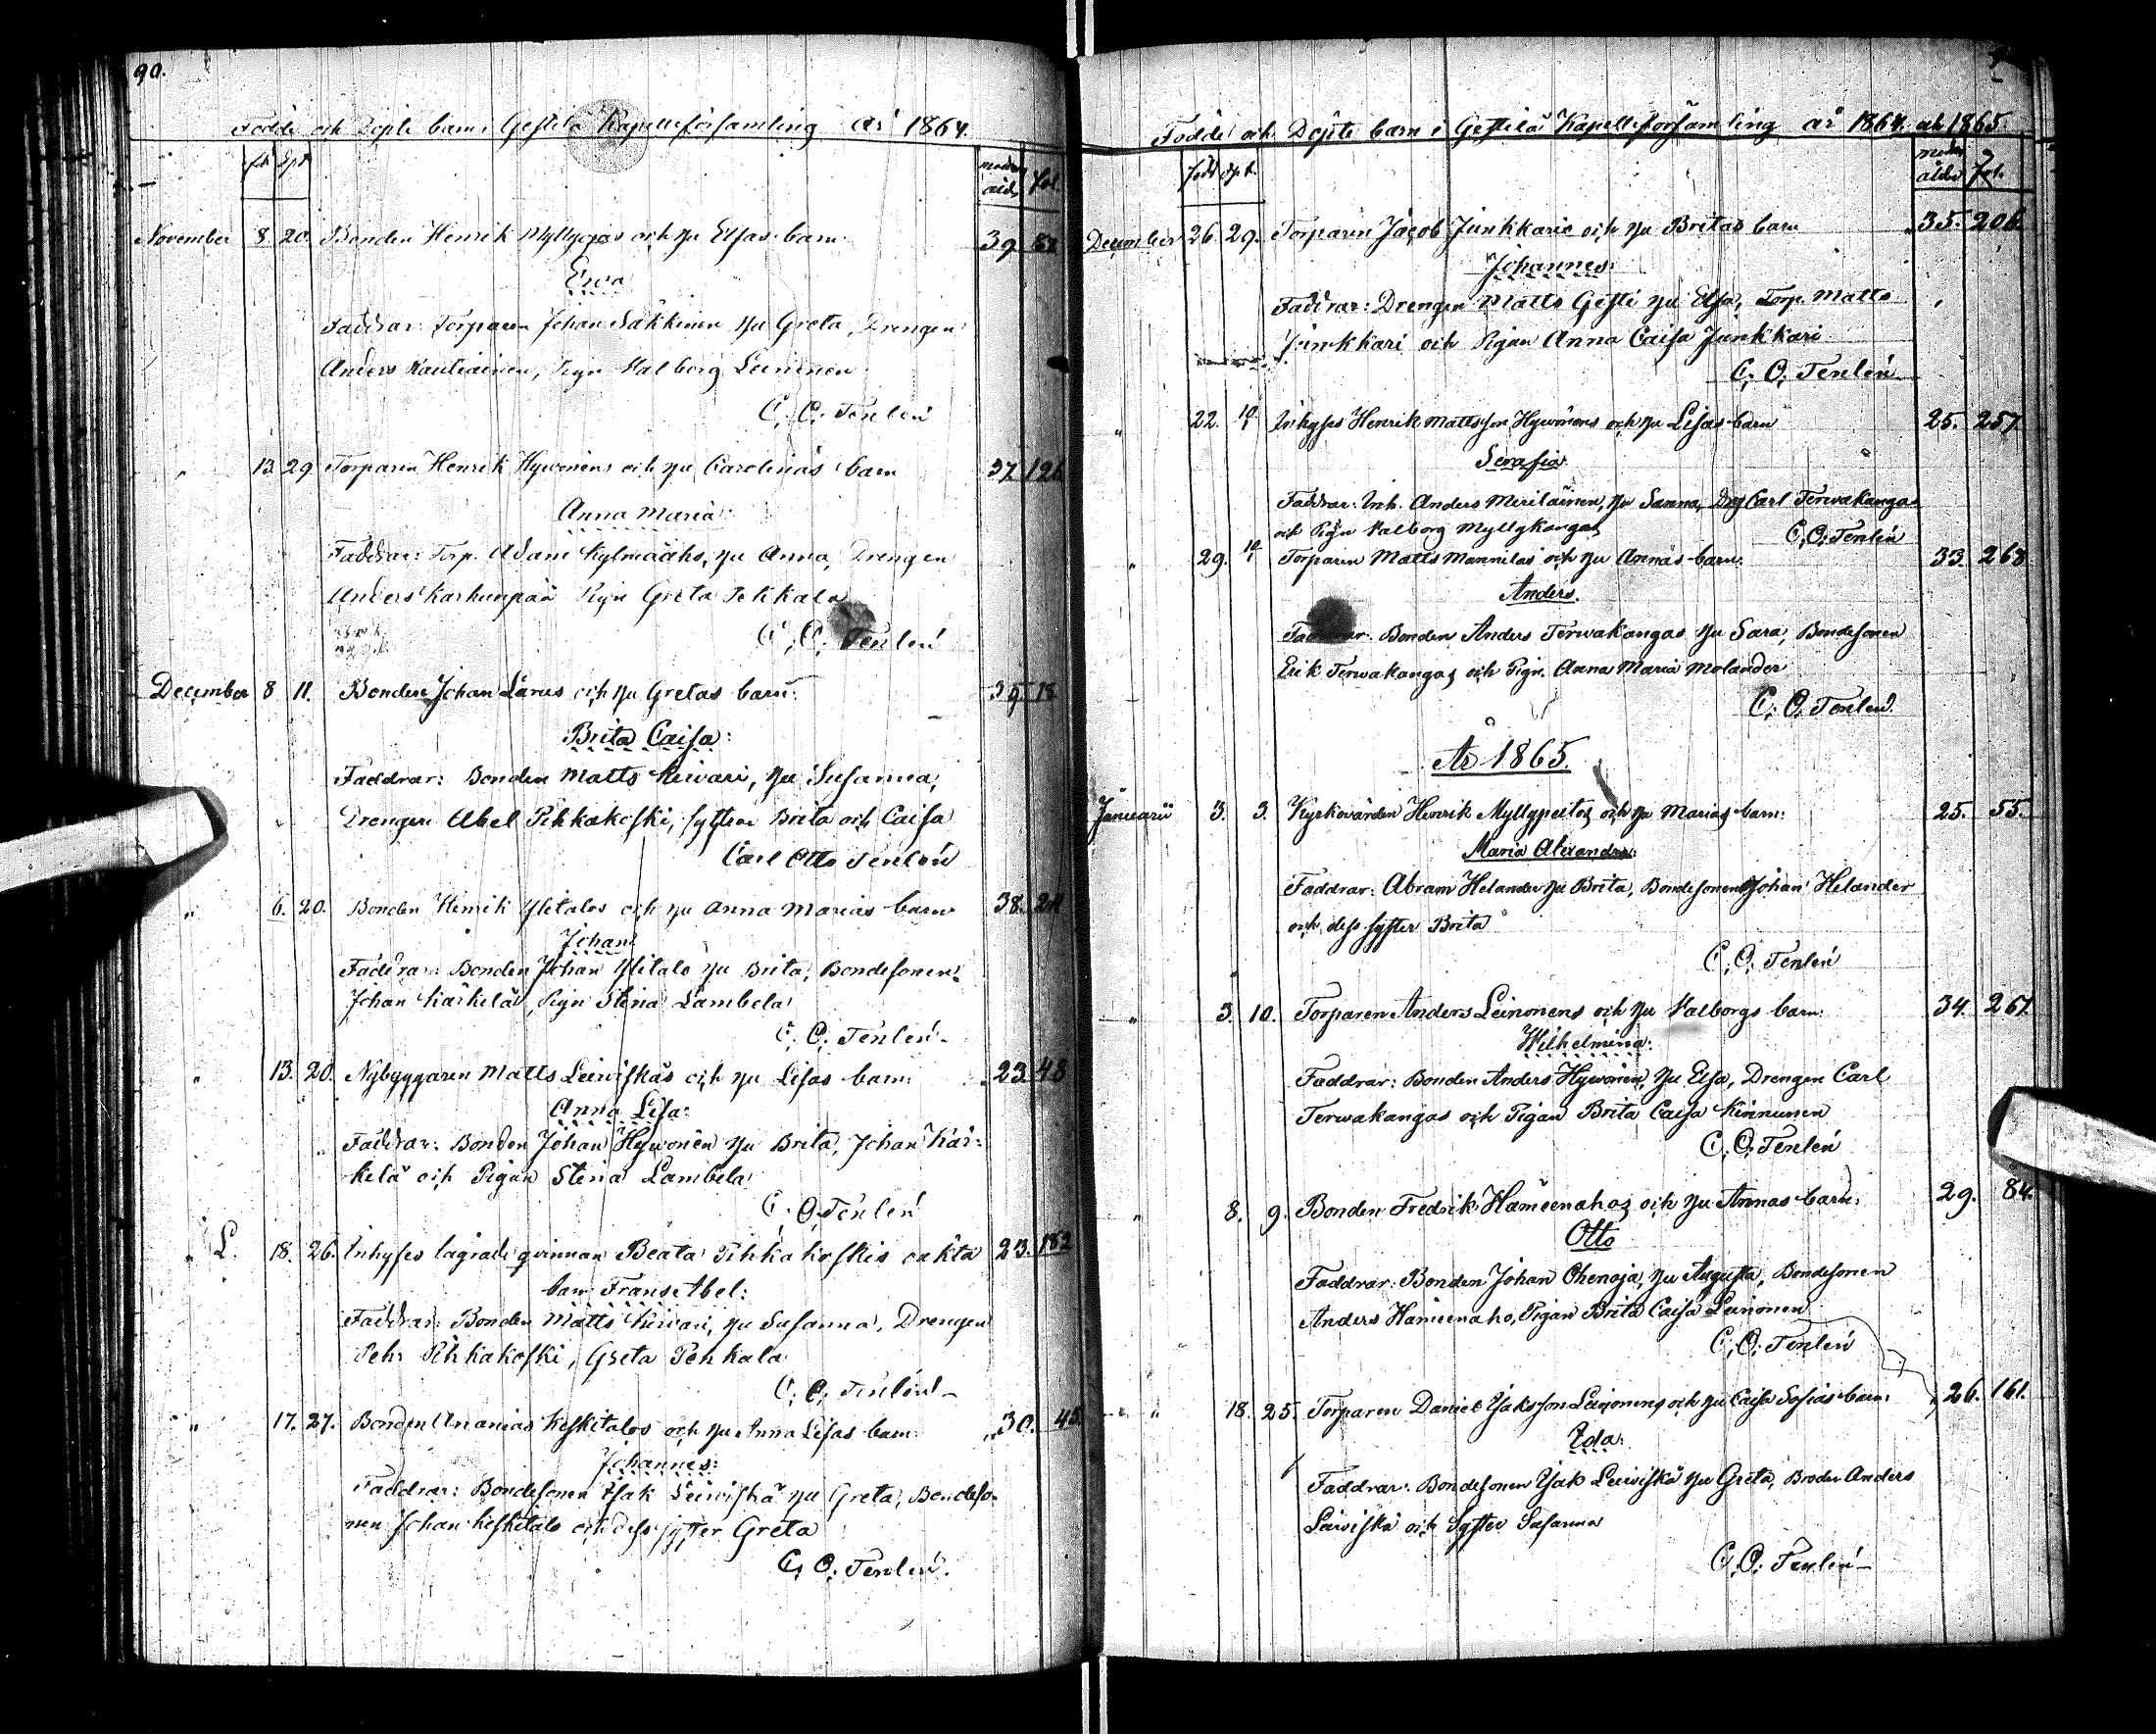 90.
Födde och Döpte barn i Gestilä Kapellsförsamling år 1864.
föd. döpt. moders ålder fol.
November 8. 20. Bonden Henrik Myllyojas och hu Elsas barn: 39 87
Ewa
Faddrar: Torparen Johan Säkkinen hu Greta, Drengen
Anders Rautiainen, Pign Walborg Leinonen
C. O. Tenlén
" 13 29 Torparen Henrik Hyvönens och hu Carolinas barn 37 126
Anna Maria:
Faddrar: Torp. Adam Kylmäaho, hu Anna, Drengen
Anders Karhunpää Pign Greta Pekkala
C. O. Tenlén
December 8 11. Bonden Johan Larus och hu Gretas barn: 39 18
Brita Caisa:
Faddrar: Bonden Matts Kiwari, hu Susanna,
Drengen Abel Pihkakoski, systrar Brita och Caisa
Carl Otto Tenlén
" 6. 20. Bonden Henrik Ylitalos och hu Anna Marias barn 38. 24
Johan
Faddrar: Bonden Johan Ylitalo hu Brita, Bondesonen
Johan Kärkelä, Pign Stina Lambela
C. O. Tenlén
" 13. 20. Nybyggaren Matts Leiwiskäs och hu Lisas barn: 23. 48
Anna Lisa:
Faddrar: Bonden Johan Hyvönen hu Brita, Johan Kär-
kelä och Pigan Stina Lambela
C. O. Tenlén
" L. 18. 26. Inhyses lägrade qvinnan Beata Pihkakoskis oäkta 23. 182
barn Frans Abel:
Faddrar: Bonden Matts Kiwari, hu Susanna, Drengen
Pehr Pihkakoski, Greta Pehkala
C. O. Tenlén
" 17. 27. Bonden Ananias Keskitalos och hu Anna Lisas barn: 30. 45.
Johannes:
Faddrar: Bondesonen Isak Leiwiskä hu Greta, Bondeso-
nen Johan Keskitalo och dess syster Greta
C. O. Tenlén.
Födde och Döpte barn i Gestilä Kapellsförsamling år 1864. och 1865.
född döpt. moders ålder fol.
December 26. 29. Torparen Jacob Junkkaris och hu Britas barn 35. 206.
Johannes:
Faddrar: Drengen Matts Gesti hu Elsa, Torp. Matts
Junkkari och Pigan Anna Caisa Junkkari
C. O. Tenlén
" 22. 10/1 Inhyses Henrik Mattsson Hyvönens och hu Lisas barn 25. 257
Serafia
Faddrar: Inh. Anders Meriläinen, hu Sanna, Drg Carl Terwakangas
och Pign Walborg Myllykangas
C. O. Tenlén
" 29. 10/1 Torparen Matts Mannilas och hu Annas barn: 33. 268
Anders.
Faddrar: Bonden Anders Terwakangas hu Sara, Bondesonen
Erik Terwakangas och Pign. Anna Maria Molander
C. O. Tenlén.
År 1865.
Januarii 3. 3. Kyrkovärden Henrik Myllypeltos och hu Marias barn: 25. 55.
Maria Alexandra:
Faddrar: Abram Helander hu Brita, Bondesonen Johan Helander
och dess syster Brita
C. O. Tenlén
" 3. 10. Torparen Anders Leinonens och hu Walborgs barn: 34. 267
Wilhelmina:
Faddrar: Bonden Anders Hyvönen, hu Elsa, Drengen Carl
Terwakangas och Pigan Brita Caisa Kinnunen
C. O. Tenlén
" 8. 9. Bonden Fredrik Hämeenahos och hu Annas barn: 29. 84.
Otto
Faddrar: Bonden Johan Ohenoja, hu Augusta, Bondesonen
Anders Hämeenaho, Pigan Brita Caisa Leinonen
C. O. Tenlén
" 18. 25. Torparen Daniel Isaksson Leinonens och hu Caisa Sofias barn: 26. 161.
Ida:
Faddrar: Bondesonen Isak Leiwiskä hu Greta, Broder Anders
Leiwiskä och Syster Susanna
C. O. Tenlén